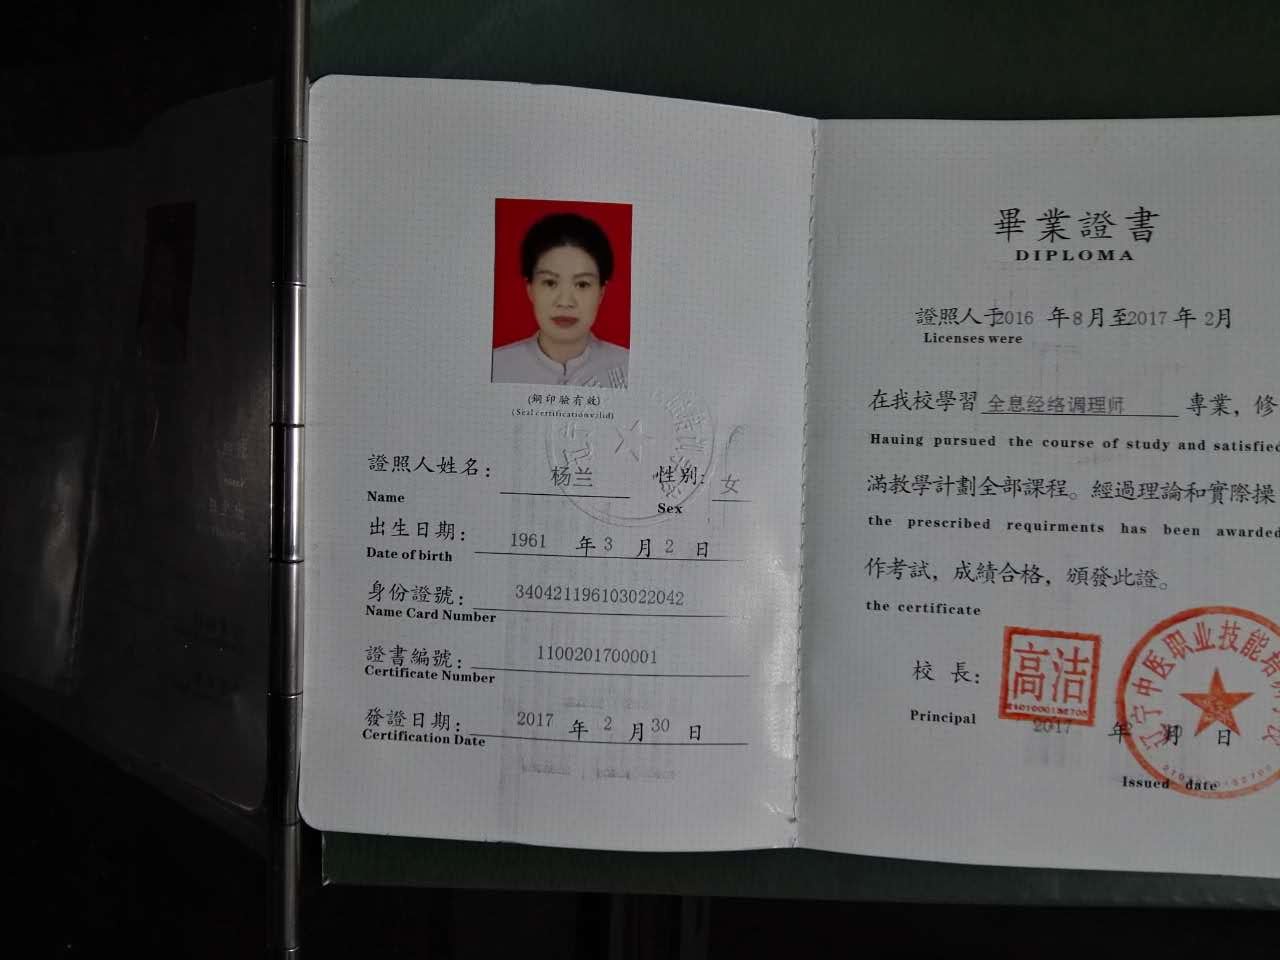 (鋼印驗有效)
(Seal certificationvalid)
證照人姓名: 杨兰 性别: 女
Name Sex
出生日期: 1961 年 3 月 2 日
Date of birth
身份證號: 340421196103022042
Name Card Number
證書編號: 1100201700001
Certificate Number
發證日期: 2017 年 2 月 30 日
Certification Date
畢業證書
DIPLOMA
證照人于2016 年 8 月至2017 年 2月
Licenses were
在我校學習 全息经络调理师 專業, 修
Hauing pursued the course of study and satisfied
滿教學計劃全部課程。經過理論和實際操
the prescribed requirments has been awarded
作考試, 成績合格, 頒發此證。
the certificate
校 長: 高洁
Principal
2017 年 月 日
Issued date
宁中医职业技能培